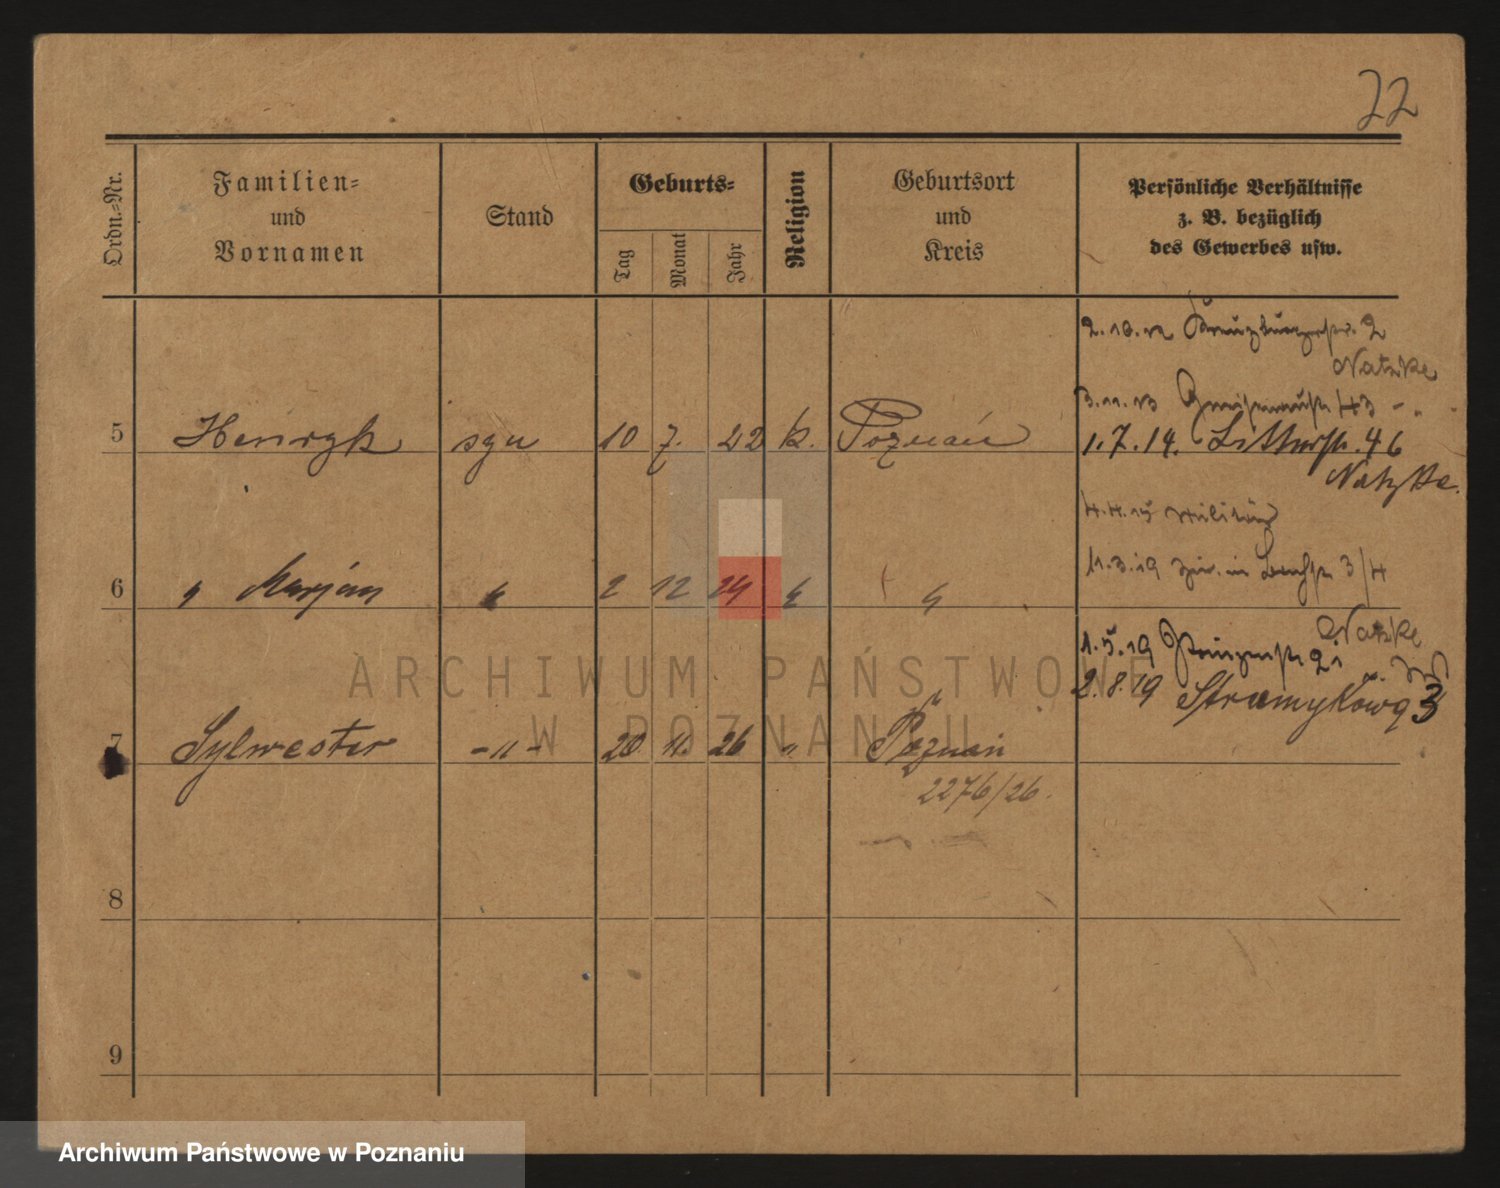 22
Ordn.-Nr.
Familien-
und
Vornamen
Stand
Geburts-
Tag
Monat
Jahr
Religion
Geburtsort
und
Kreis
Persönliche Verhältnisse
z. B. bezüglich
des Gewerbes usw.
2.10.12 Kreuzburgerstr. 2
Natzke
3.11.13 Gneisenaustr. 43 - "
5 Henryk syn 10 7. 22 k. Poznań
1.7.14. 46
Natzke.
4.4.15 Militär
6 " Marjan " 2 12 24 " "
11.3.19 3/4
Natzke
1.5.19 21
2.8.19 3
7 Sylwester -"- 20 11. 26 " Poznań
2276/26.
8
9
ARCHIWUM PAŃSTWOWE
W POZNANIU
Archiwum Państwowe w Poznaniu